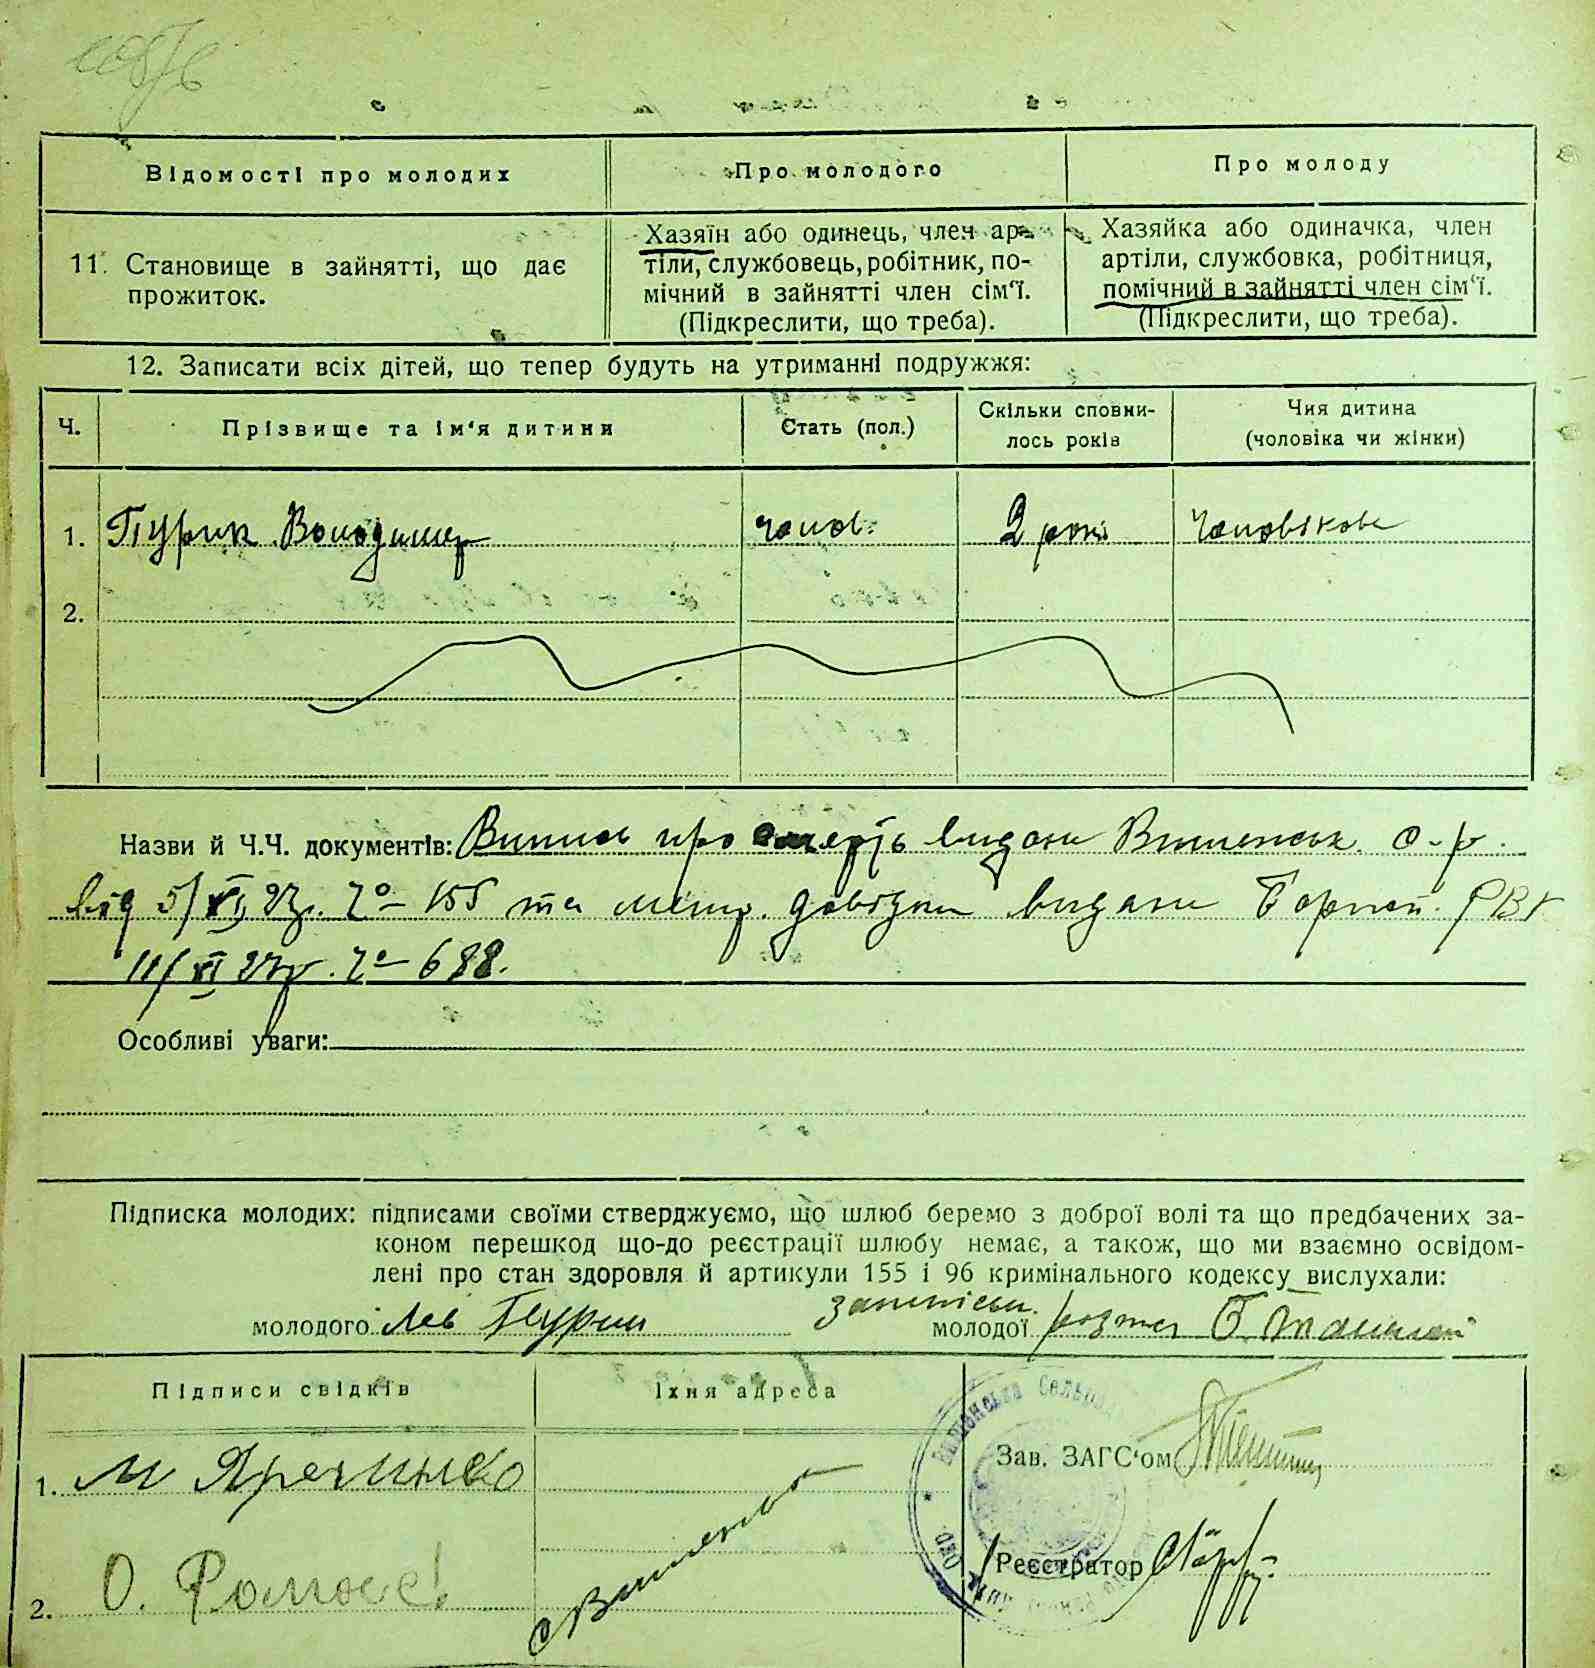 Відомості про молодих
Про молодого
Про молоду
11. Становище в зайнятті, що дає
прожиток.
Хазяїн або одинець, член ар-
тіли, службовець, робітник, по-
мічний в зайнятті член сім'ї.
(Підкреслити, що треба).
Хазяйка або одиначка, член
артіли, службовка, робітниця,
помічний в зайнятті член сім'ї.
(Підкреслити, що треба).
12. Записати всіх дітей, що тепер будуть на утриманні подружжя:
Ч.
Прізвище та ім'я дитини
Стать (пол.)
Скільки сповни-
лось років
Чия дитина
(чоловіка чи жінки)
1. Пурик Володимир
чолов.
2 роки
Чоловікова
2.
Назви й Ч.Ч. документів: Випись про смерть видани Вишенськ. с-р.
від 5/XI 27р. Ч° 155 та довідки видани РВК
11/XI 27р. Ч° 688.
Особливі уваги:
Підписка молодих: підписами своїми стверджуємо, що шлюб беремо з доброї волі та що предбачених за-
коном перешкод що-до реєстрації шлюбу немає, а також, що ми взаємно освідом-
лені про стан здоровля й артикули 155 і 96 кримінального кодексу вислухали:
молодого Лев Пурик
молодої
Підписи свідків
Їхня адреса
1. М Яреченко
2. О.
Зав. ЗАГС'ом
Реєстратор